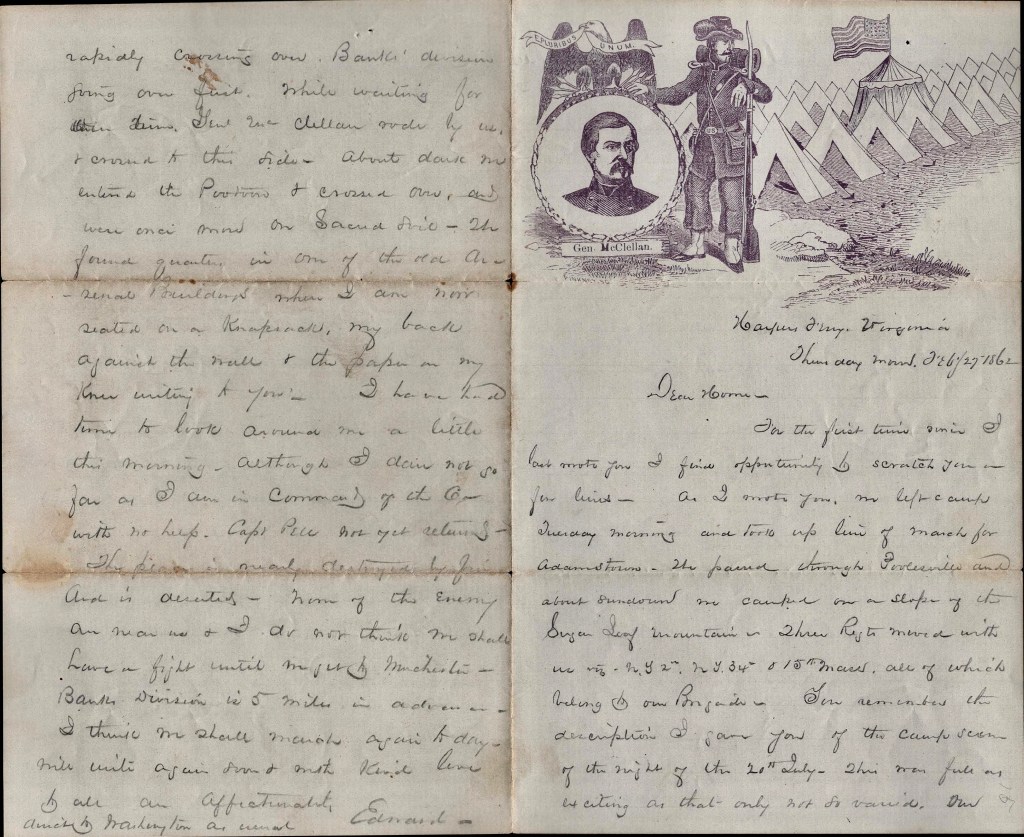 E PLURIBUS UNUM
Gen. McClellan.
Harpers Ferry. Virginia
Thursday morn. Feb/27 1862
Dear Home –
For the first time since I
last wrote you I find opportunity to scratch you a
few lines – As I wrote you, we left camp
Tuesday morning and took up line of march for
Adamstown – We passed through Poolesville and
about sundown we camped on a slope of the
Sugar Loaf Mountain – Three Regts moved with
us viz – N.Y. 2nd, N.Y. 34th & 15th Mass. all of which
belong to our Brigade – You remember the
description I gave you of the camp scene
of the night of the 20th July – This was full as
exciting as that only not so varied. Our
rapidly crossing over. Banks' division
going over first. While waiting for
our turn. Genl McClellan rode by us,
& crossed to this side – About dark we
entered the Pontoon & crossed over, and
were once more on Sacred Soil – We
found quarters in one of the old Ar–
–senal Buildings where I am now
seated on a Knapsack, my back
against the wall & the paper on my
Knee writing to you – I have had
time to look around me a little
this morning – Although I dare not go
far as I am in Command of the Co–
with no help. Capt Pell not yet returned –
The place is nearly destroyed by fire
And is deserted – None of the Enemy
are near us & I do not think we shall
have a fight until we get to Winchester –
Banks Division is 5 miles in advance –
I think we shall march again to day –
Will write again soon & with Kind love
to all am Affectionately
direct to Washington as usual Edward –